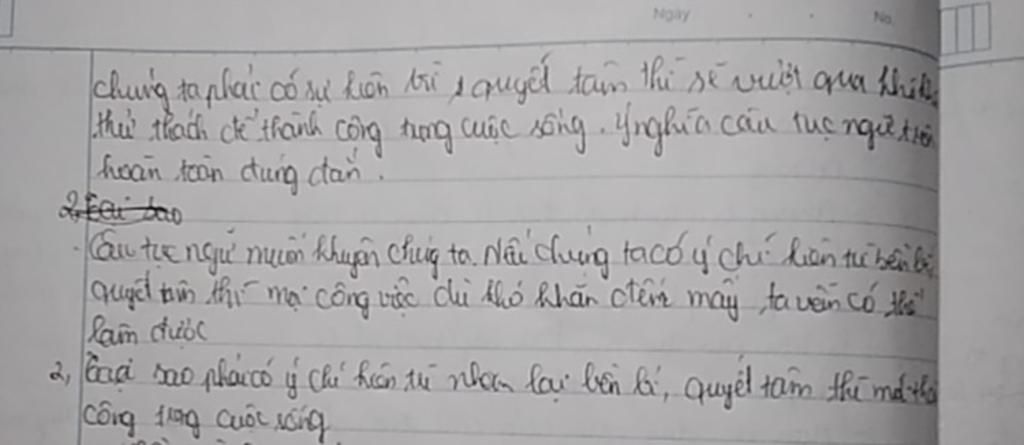 Ngày No.
chúng ta phải có sự kiên trì, quyết tâm thì sẽ vượt qua
thử thách để thành công trong cuộc sống. Ý nghĩa câu tục ngữ trên
hoàn toàn đúng đắn.
2, Tại sao
- Câu tục ngữ muốn khuyên chúng ta. Nếu chúng ta có ý chí kiên trì bền bỉ
quyết tâm thì mọi công việc dù khó khăn đến mấy, ta vẫn có thể
làm được
2, Tại sao phải có ý chí kiên trì nhẫn lại bền bỉ, quyết tâm thì mới
công trong cuộc sống